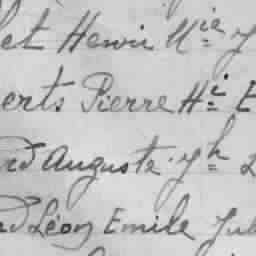 let Henri Mie J
erts Pierre Hi E
rd Auguste Jh
rd Léon Emile Jul